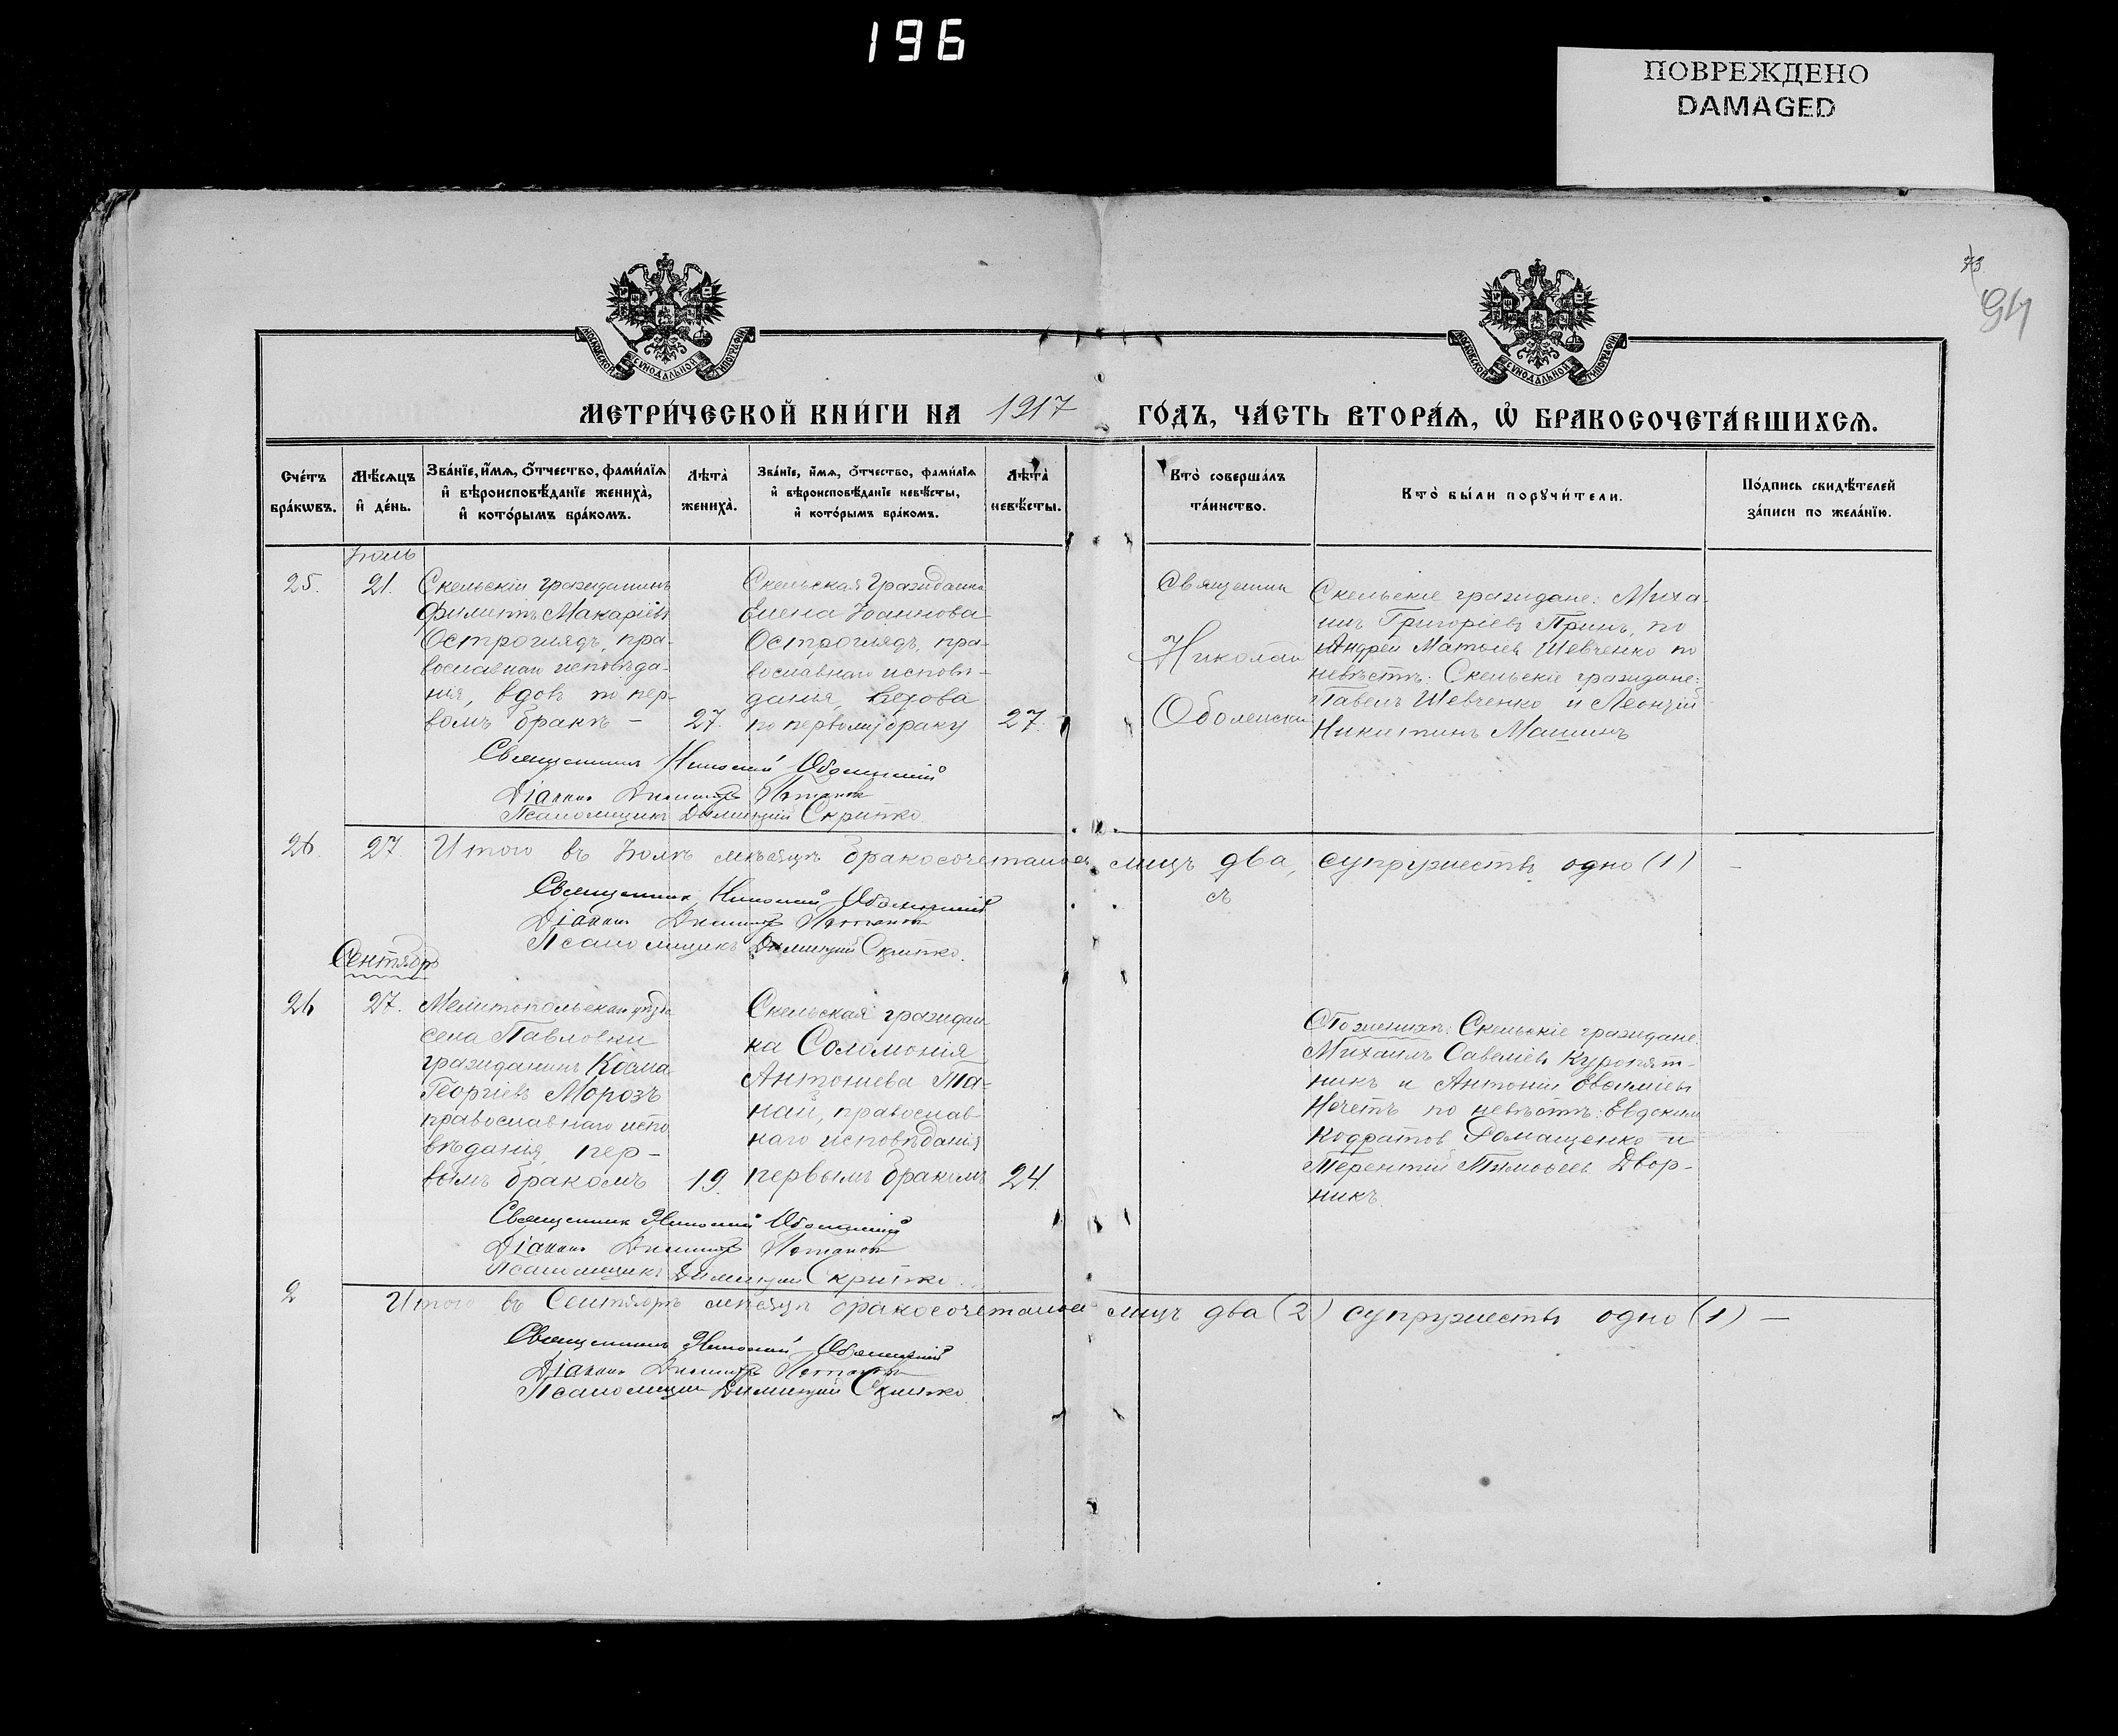 196
ПОВРЕЖДЕНО
DAMAGED
73
94
МОСКОВСКОЙ СѴНОДАЛЬНОЙ ТИПОГРАФІИ
МОСКОВСКОЙ СѴНОДАЛЬНОЙ ТИПОГРАФІИ
МЕТРИ́ЧЕСКОЙ КНИ́ГИ НА 1917 ГО́ДЪ, ЧА́СТЬ ВТОРА́Ѧ, Ѡ҆ БРАКОСОЧЕТА́ВШИХСѦ.
Сче́тъ
бра́кѡвъ.
Мѣ́сѧцъ
и҆ де́нь.
Зва́нїе, и҆́мѧ, ѻ҆́тчество, фами́лїѧ
и҆ вѣроисповѣ́данїе жениха̀,
и҆ кото́рымъ бра́комъ.
Лѣ́та̀
жениха̀.
Зва́нїе, и҆́мѧ, ѻ҆́тчество, фами́лїѧ
и҆ вѣроисповѣ́данїе невѣ́сты,
и҆ кото́рымъ бра́комъ.
Лѣ́та̀
невѣ́сты.
Кто̀ соверша́лъ
та́инство.
Кто̀ бы́ли порꙋчи́тели.
По́дпись свидѣ́телей
за́писи по жела́нїю.
Іюль
25. 21.
Скельскій гражданинъ
Филиппъ Макаріевъ
Остроглядъ, пра-
вославнаго исповѣда-
нія, вдовъ по пер-
вомъ бракѣ –
27.
Скельская Гражданка
Елена Іоаннова
Остроглядъ, пра-
вославнаго исповѣ-
данія,
по первому браку
27.
Священник
Николай
Оболенскій
Скельскіе граждане: Миха-
илъ Григоріевъ по
Андрей Шевченко по
невѣстѣ: Скельскіе граждане:
Павелъ Шевченко и Леонтій
Никитинъ Машинъ
Священникъ Николай Оболенскій
Діаконъ Димитрій Потапов
Псаломщикъ Димитрій Скрипко.
26. 27. Итого въ Іюлѣ мѣсяцѣ бракосочеталось лицъ два, супружествъ одно (1) –
Священник Николай Оболенскій
Діаконъ Димитрій Потапов
Псаломщикъ Димитрій Скрипко.
Сентябрь
26 27.
Мелитопольскаго уѣзда
села Павловки
гражданинъ Косма
Георгіевъ Морозъ
православнаго испо
вѣданія, пер-
вымъ бракомъ
19.
Скельская граждан
ка Соломонія
Антоніева
православ-
наго исповѣданія
первымъ бракомъ
24.
По женихѣ: Скельскіе граждане:
Михаилъ Савеліевъ Куропят-
никъ и Антоній Евфиміевъ
Нечетъ по невѣстѣ: Евдокимъ
Кодратов Ромащенко и
Терентій Тимофеев Двор-
никъ.
Священник Николай Оболенскій
Діаконъ Димитрій Потапов
Псаломщикъ Димитрій Скрипко.
2 Итого въ Сентябрѣ мѣсяцѣ бракосочеталось лицъ два (2) супружествъ одно (1) –
Священникъ Николай Оболенскій
Діаконъ Димитрій Потапов
Псаломщик Димитрій Скрипко.